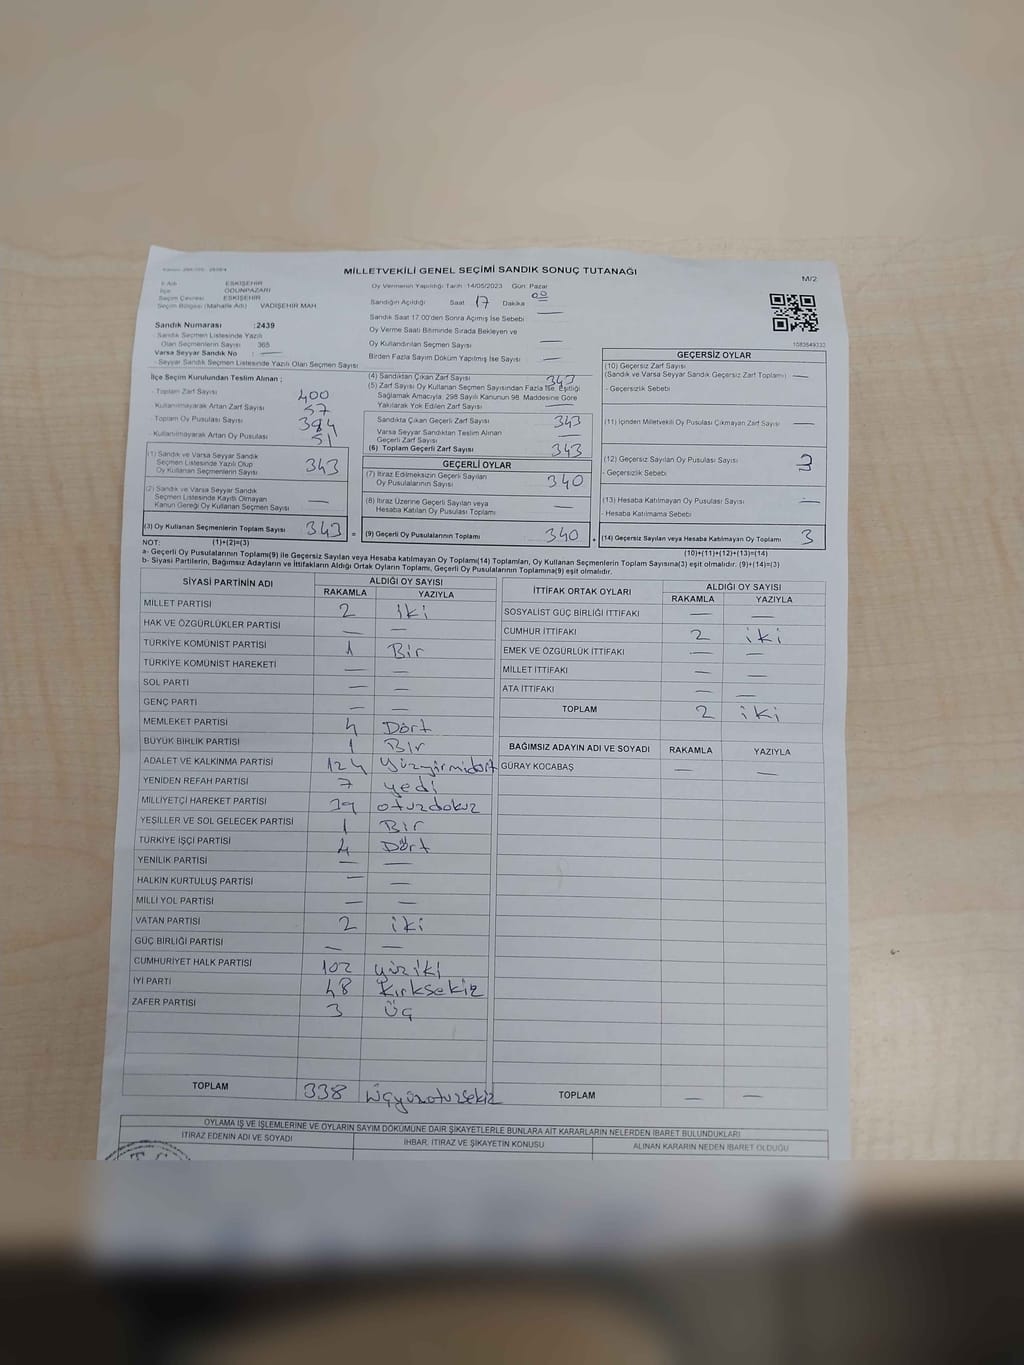 MİLLETVEKİLİ GENEL SEÇİMİ SANDIK SONUÇ TUTANAĞI
M/2
İl Adı : ESKİŞEHİR
İlçe : ODUNPAZARI
Seçim Çevresi : ESKİŞEHİR
Seçim Bölgesi (Mahalle Adı) : VADİŞEHİR MAH.
Oy Vermenin Yapıldığı Tarih :14/05/2023 Gün: Pazar
Sandığın Açıldığı Saat 17 Dakika 00
Sandık Saat 17.00'den Sonra Açılmış İse Sebebi —
Oy Verme Saati Bitiminde Sırada Bekleyen ve
Oy Kullandırılan Seçmen Sayısı —
Birden Fazla Sayım Döküm Yapılmış İse Sayısı —
1083549332
Sandık Numarası :2439
- Sandık Seçmen Listesinde Yazılı
Olan Seçmenlerin Sayısı 365
Varsa Seyyar Sandık No : —
- Seyyar Sandık Seçmen Listesinde Yazılı Olan Seçmen Sayısı
İlçe Seçim Kurulundan Teslim Alınan ;
- Toplam Zarf Sayısı 400
- Kullanılmayarak Artan Zarf Sayısı 57
- Toplam Oy Pusulası Sayısı 394
- Kullanılmayarak Artan Oy Pusulası 51
(1) Sandık ve Varsa Seyyar Sandık
Seçmen Listesinde Yazılı Olup
Oy Kullanan Seçmenlerin Sayısı 343
(2) Sandık ve Varsa Seyyar Sandık
Seçmen Listesinde Kayıtlı Olmayan
Kanun Gereği Oy Kullanan Seçmen Sayısı —
(3) Oy Kullanan Seçmenlerin Toplam Sayısı 343 =
(4) Sandıktan Çıkan Zarf Sayısı 343
(5) Zarf Sayısı Oy Kullanan Seçmen Sayısından Fazla İse, Eşitliği
Sağlamak Amacıyla; 298 Sayılı Kanunun 98. Maddesine Göre
Yakılarak Yok Edilen Zarf Sayısı —
Sandıkta Çıkan Geçerli Zarf Sayısı 343
Varsa Seyyar Sandıktan Teslim Alınan
Geçerli Zarf Sayısı —
(6) Toplam Geçerli Zarf Sayısı 343
GEÇERLİ OYLAR
(7) İtiraz Edilmeksizin Geçerli Sayılan
Oy Pusulalarının Sayısı 340
(8) İtiraz Üzerine Geçerli Sayılan veya
Hesaba Katılan Oy Pusulası Toplamı —
(9) Geçerli Oy Pusulalarının Toplamı 340 +
GEÇERSİZ OYLAR
(10) Geçersiz Zarf Sayısı
(Sandık ve Varsa Seyyar Sandık Geçersiz Zarf Toplamı) —
- Geçersizlik Sebebi
(11) İçinden Milletvekili Oy Pusulası Çıkmayan Zarf Sayısı —
(12) Geçersiz Sayılan Oy Pusulası Sayısı 3
- Geçersizlik Sebebi
(13) Hesaba Katılmayan Oy Pusulası Sayısı —
- Hesaba Katılmama Sebebi
(14) Geçersiz Sayılan veya Hesaba Katılmayan Oy Toplamı 3
NOT: (1)+(2)=(3) (10)+(11)+(12)+(13)=(14)
a- Geçerli Oy Pusulalarının Toplamı(9) ile Geçersiz Sayılan veya Hesaba katılmayan Oy Toplamı(14) Toplamları, Oy Kullanan Seçmenlerin Toplam Sayısına(3) eşit olmalıdır. (9)+(14)=(3)
b- Siyasi Partilerin, Bağımsız Adayların ve İttifakların Aldığı Ortak Oyların Toplamı, Geçerli Oy Pusulalarının Toplamına(9) eşit olmalıdır.
SİYASİ PARTİNİN ADI ALDIĞI OY SAYISI
RAKAMLA YAZIYLA
MİLLET PARTİSİ 2 iki
HAK VE ÖZGÜRLÜKLER PARTİSİ — —
TÜRKİYE KOMÜNİST PARTİSİ 1 Bir
TÜRKİYE KOMÜNİST HAREKETİ — —
SOL PARTİ — —
GENÇ PARTİ — —
MEMLEKET PARTİSİ 4 Dört
BÜYÜK BİRLİK PARTİSİ 1 Bir
ADALET VE KALKINMA PARTİSİ 124 yüzyirmidört
YENİDEN REFAH PARTİSİ 7 yedi
MİLLİYETÇİ HAREKET PARTİSİ 39 otuzdokuz
YEŞİLLER VE SOL GELECEK PARTİSİ 1 Bir
TÜRKİYE İŞÇİ PARTİSİ 4 Dört
YENİLİK PARTİSİ — —
HALKIN KURTULUŞ PARTİSİ — —
MİLLİ YOL PARTİSİ — —
VATAN PARTİSİ 2 iki
GÜÇ BİRLİĞİ PARTİSİ — —
CUMHURİYET HALK PARTİSİ 102 yüziki
İYİ PARTİ 48 kırksekiz
ZAFER PARTİSİ 3 üç
TOPLAM 338 üçyüzotuzsekiz
İTTİFAK ORTAK OYLARI ALDIĞI OY SAYISI
RAKAMLA YAZIYLA
SOSYALİST GÜÇ BİRLİĞİ İTTİFAKI — —
CUMHUR İTTİFAKI 2 iki
EMEK VE ÖZGÜRLÜK İTTİFAKI — —
MİLLET İTTİFAKI — —
ATA İTTİFAKI — —
TOPLAM 2 iki
BAĞIMSIZ ADAYIN ADI VE SOYADI RAKAMLA YAZIYLA
GÜRAY KOCABAŞ — —
TOPLAM — —
OYLAMA İŞ VE İŞLEMLERİNE VE OYLARIN SAYIM DÖKÜMÜNE DAİR ŞİKAYETLERLE BUNLARA AİT KARARLARIN NELERDEN İBARET BULUNDUKLARI
İTİRAZ EDENİN ADI VE SOYADI İHBAR, İTİRAZ VE ŞİKAYETİN KONUSU ALINAN KARARIN NEDEN İBARET OLDUĞU
T.C.